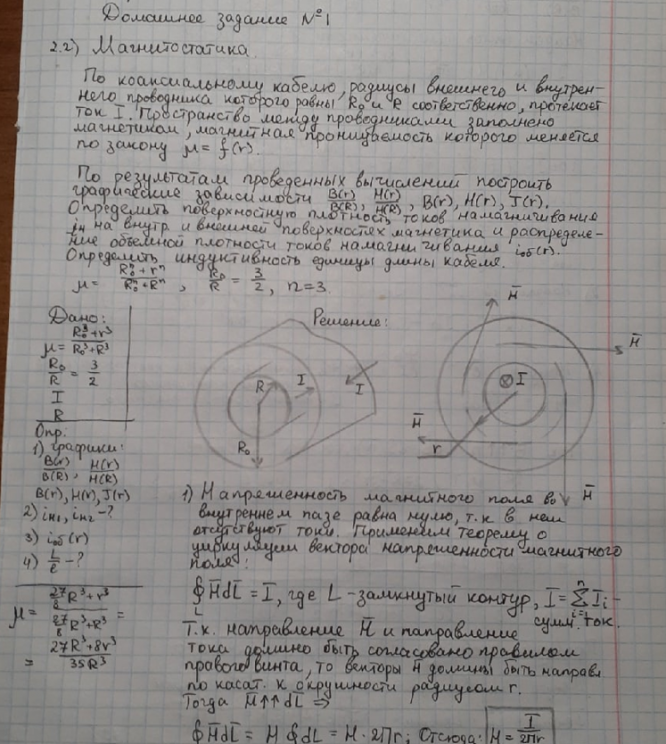 Домашнее задание №1
2.2) Магнитостатика.
По коаксиальному кабелю, радиусы внешнего и внутрен-
него проводника которого равны R₀ и R соответственно, протекает
ток I. Пространство между проводниками заполнено
магнетиком, магнитная проницаемость которого меняется
по закону μ = f(r).
По результатам проведенных вычислений построить
графические зависимости B(r)/B(R), H(r)/H(R), B(r), H(r), J(r).
Определить поверхностную плотность токов намагничивания
на внутр и внешней поверхностях магнетика и распределе-
ние объемной плотности токов намагничивания iоб(r).
Определить индуктивность единицы длины кабеля.
μ = (R₀ⁿ + rⁿ)/(R₀ⁿ + Rⁿ), R₀/R = 3/2, n = 3.
Дано:
μ = (R₀³ + r³)/(R₀³ + R³)
R₀/R = 3/2
I
R
Опр:
1) графики:
B(r)/B(R), H(r)/H(R)
B(r), H(r), J(r)
2) iн1, iн2 - ?
3) iоб(r)
4) L/ℓ - ?
μ = (27/8 R³ + r³)/(27/8 R³ + R³) =
= (27R³ + 8r³)/(35R³)
Решение:
R
I
I
R₀
H̄
H̄
I
H̄
r
H̄
1) Напряженность магнитного поля во
внутреннем пазе равна нулю, т.к в нем
отсутствуют токи. Применим теорему о
циркуляции вектора напряженности магнитного
поля:
∮ H̄dL̄ = I, где L - замкнутый контур, I = Σ Iᵢ -
L
n
i=1
сумм. ток.
Т.к. направление H̄ и направление
тока должно быть согласовано правилом
правого винта, то векторы H̄ должны быть направл
по касат. к окружности радиусом r.
Тогда H̄ ↑↑ dL̄ ⇒
∮ H̄dL̄ = H ∮ dL = H · 2πr; Отсюда: H = I/2πr